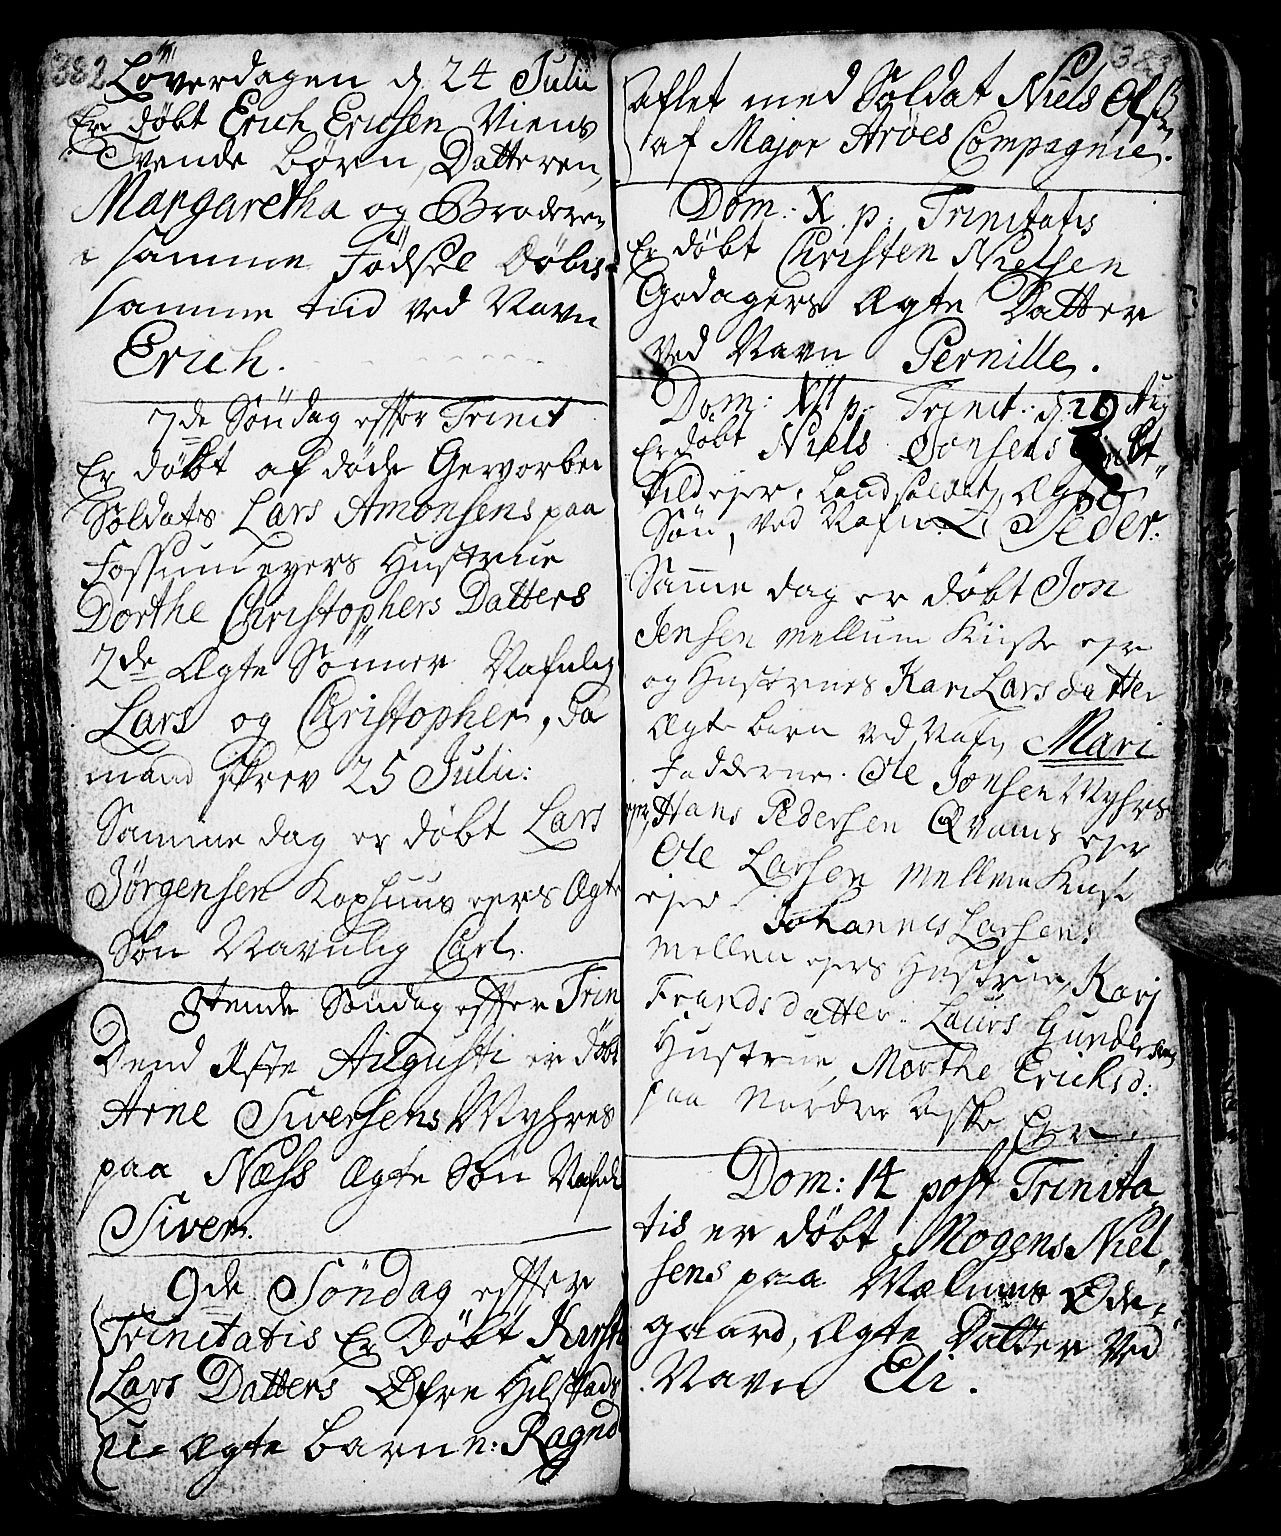 382
Löverdagen d 24 Julii
Er döbt Erich Ericsen Viens
Tvende börn, Datteren
Margaretha og Broderen
i samme Födsel Döbis
samme tiid ved Navn
Erich.
7de Söndag effter Trinit
Er döbt af döde Gevorben
Soldats Lars Amonsens paa
Fossum eyers Hustrue
Dorthe Christophers Datters
2de Ægte Sönner Nafnlig
Lars og Christopher, da
mand skrev 25 Julii:
Samme dag er döbt Lars
Jörgensen Kophuus eyers Ægte
Sön Navnlig Carl.
8tende Söndag effter Trin
Dend 1ste Augusti er döbt
Arne Siversens Myhres
paa Næss Ægte Sön Nafnl
Siver.
9de Söndag effter
Trinitatis Er Döbt Karsti
Lars Datters Øfre Hilstads
U-Ægte barn n: Ragnd
383
aflet med Soldat Niels Ols
af Major Aröes Compagnie.
Dom: X p: Trinitatis
Er döbt Christen Nielsen
Godagers Ægte Datter
Ved Navn Pernille.
Dom: XII p: Trinit: d. 20 Aug
Er döbt Niels Jonsens
Landsoldat, Ægte
Sön, ved Nafn Peder:
Samme dag er döbt Jon
Jensen mellum Kirke ejer
og Hustrues Kari Larsdatter
Ægte barn ved Nafn Mari
Fadderne. Ole Jonsen Myhrs
ejer, Hans Pedersen Qvams ejer
Ole Larsen Mellem Kirke
ejer Johannes Larsens
Mellem ejers Hustrue, Karj
Frandsdatter. Laurs Gundersens
Hustrue, Marthe Ericksd:
paa Nordre Aske Ejer.
Dom: 14 post Trinita
tis er döbt Mogens Niel,,
sens paa Mælums Öde-
gaard, Ægte Datter Ved
Navn Eli.